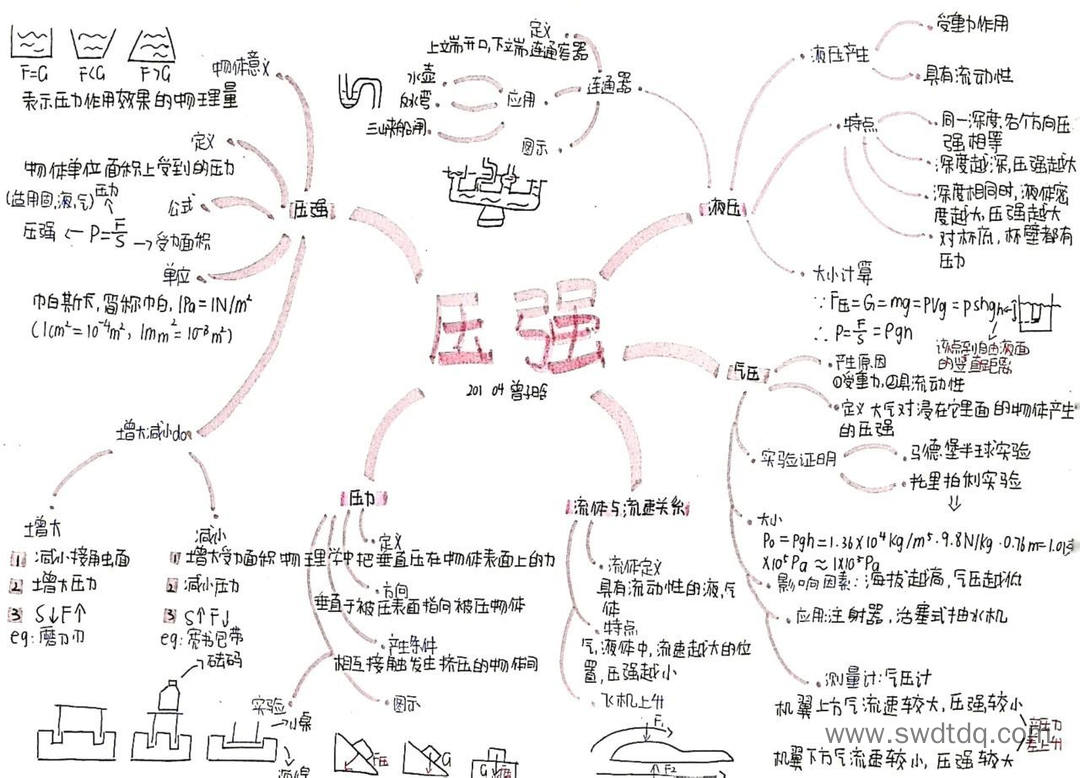 压强
201 04
压强
物体意义
F=G F<G F>G
表示压力作用效果的物理量
定义
物体单位面积上受到的压力
(适用固,液,气)
公式
压力
压强 ← P=F/S → 受力面积
单位
帕斯卡,简称帕, 1Pa=1N/m²
(1cm²=10⁻⁴m², 1mm²=10⁻³m²)
增大减小do
增大
1 减小接触面
2 增大压力
3 S↓F↑
eg:磨刀刃
减小
1 增大受力面积
2 减小压力
3 S↑F↓
eg:宽书包带
连通器
定义
上端开口,下端连通容器
应用
水壶
三峡船闸
图示
液压
液压产生
受重力作用
具有流动性
特点
同一深度,各个方向压
强相等
深度越深,压强越大
深度相同时,液体密
度越大,压强越大
对杯底,杯壁都有
压力
大小计算
∵F压=G=mg=ρVg=ρshg
∴P=F/S=ρgh
该点到自由液面
的竖直距离
气压
产生原因
①受重力,②具流动性
定义 大气对浸在它里面的物体产生
的压强
实验证明
马德堡半球实验
托里拍利实验
⇓
大小
P₀=ρgh=1.36×10⁴kg/m³·9.8N/kg·0.76m=1.013
×10⁵Pa≈1×10⁵Pa
影响因素:海拔越高,气压越低
应用:注射器,活塞式抽水机
测量计:气压计
压力
定义
物理学中把垂直压在物体表面上的力
方向
垂直于被压表面指向被压物体
产生条件
相互接触发生挤压的物体间
图示
F压 G G F压
实验
砝码
小桌
流体与流速关系
流体定义
具有流动性的液,气
体
特点
气,液体中,流速越大的位
置,压强越小
飞机上升
F₁
F2
机翼上方气流速较大,压强较小
机翼下方气流速较小,压强较大
www.swdtdq.com